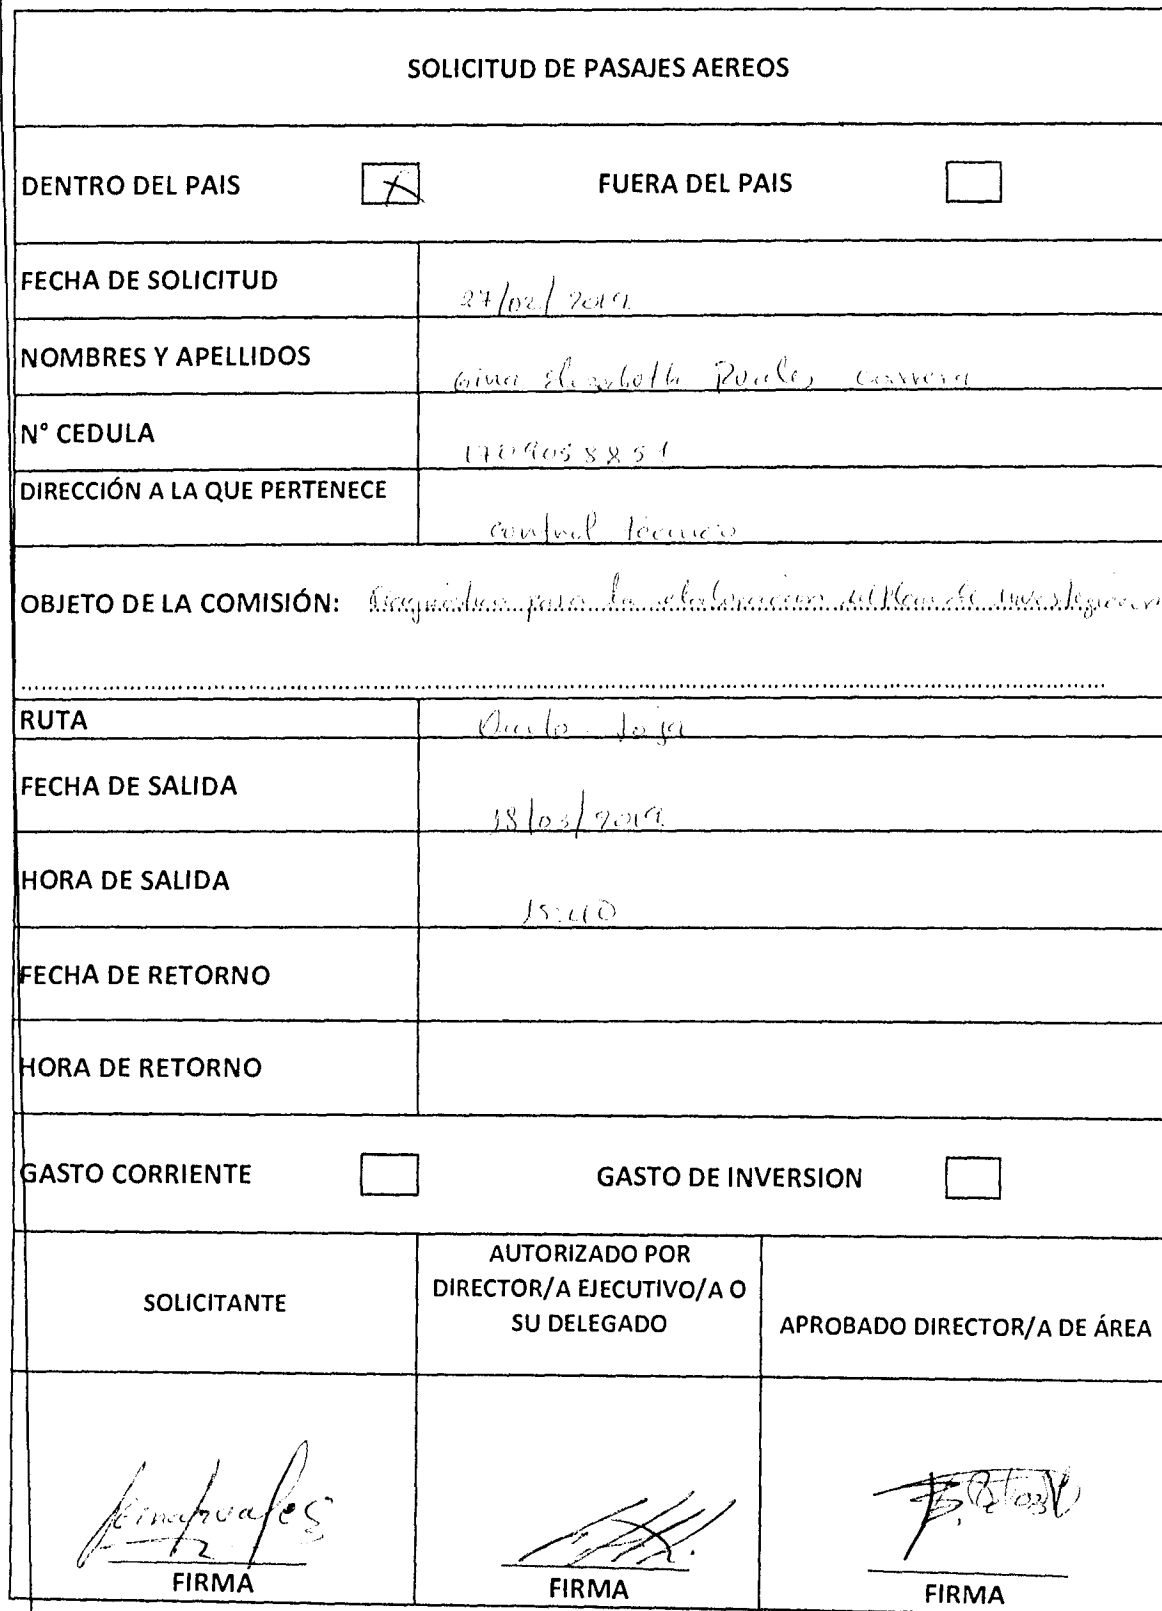 SOLICITUD DE PASAJES AEREOS
DENTRO DEL PAIS FUERA DEL PAIS
FECHA DE SOLICITUD 27/02/2019
NOMBRES Y APELLIDOS Gina Elizabeth
N° CEDULA 1709058851
DIRECCIÓN A LA QUE PERTENECE control técnico
OBJETO DE LA COMISIÓN: Diagnóstico para la elaboración del Plan de investigación
RUTA Quito - Loja
FECHA DE SALIDA 18/03/2019
HORA DE SALIDA 15:40
FECHA DE RETORNO
HORA DE RETORNO
GASTO CORRIENTE GASTO DE INVERSION
SOLICITANTE
AUTORIZADO POR
DIRECTOR/A EJECUTIVO/A O
SU DELEGADO
APROBADO DIRECTOR/A DE ÁREA
FIRMA FIRMA FIRMA